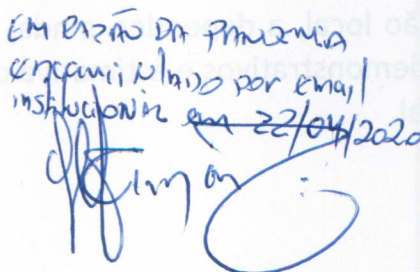 EM RAZÃO DA PANDEMIA
encaminhado por email
institucional em 22/04/2020